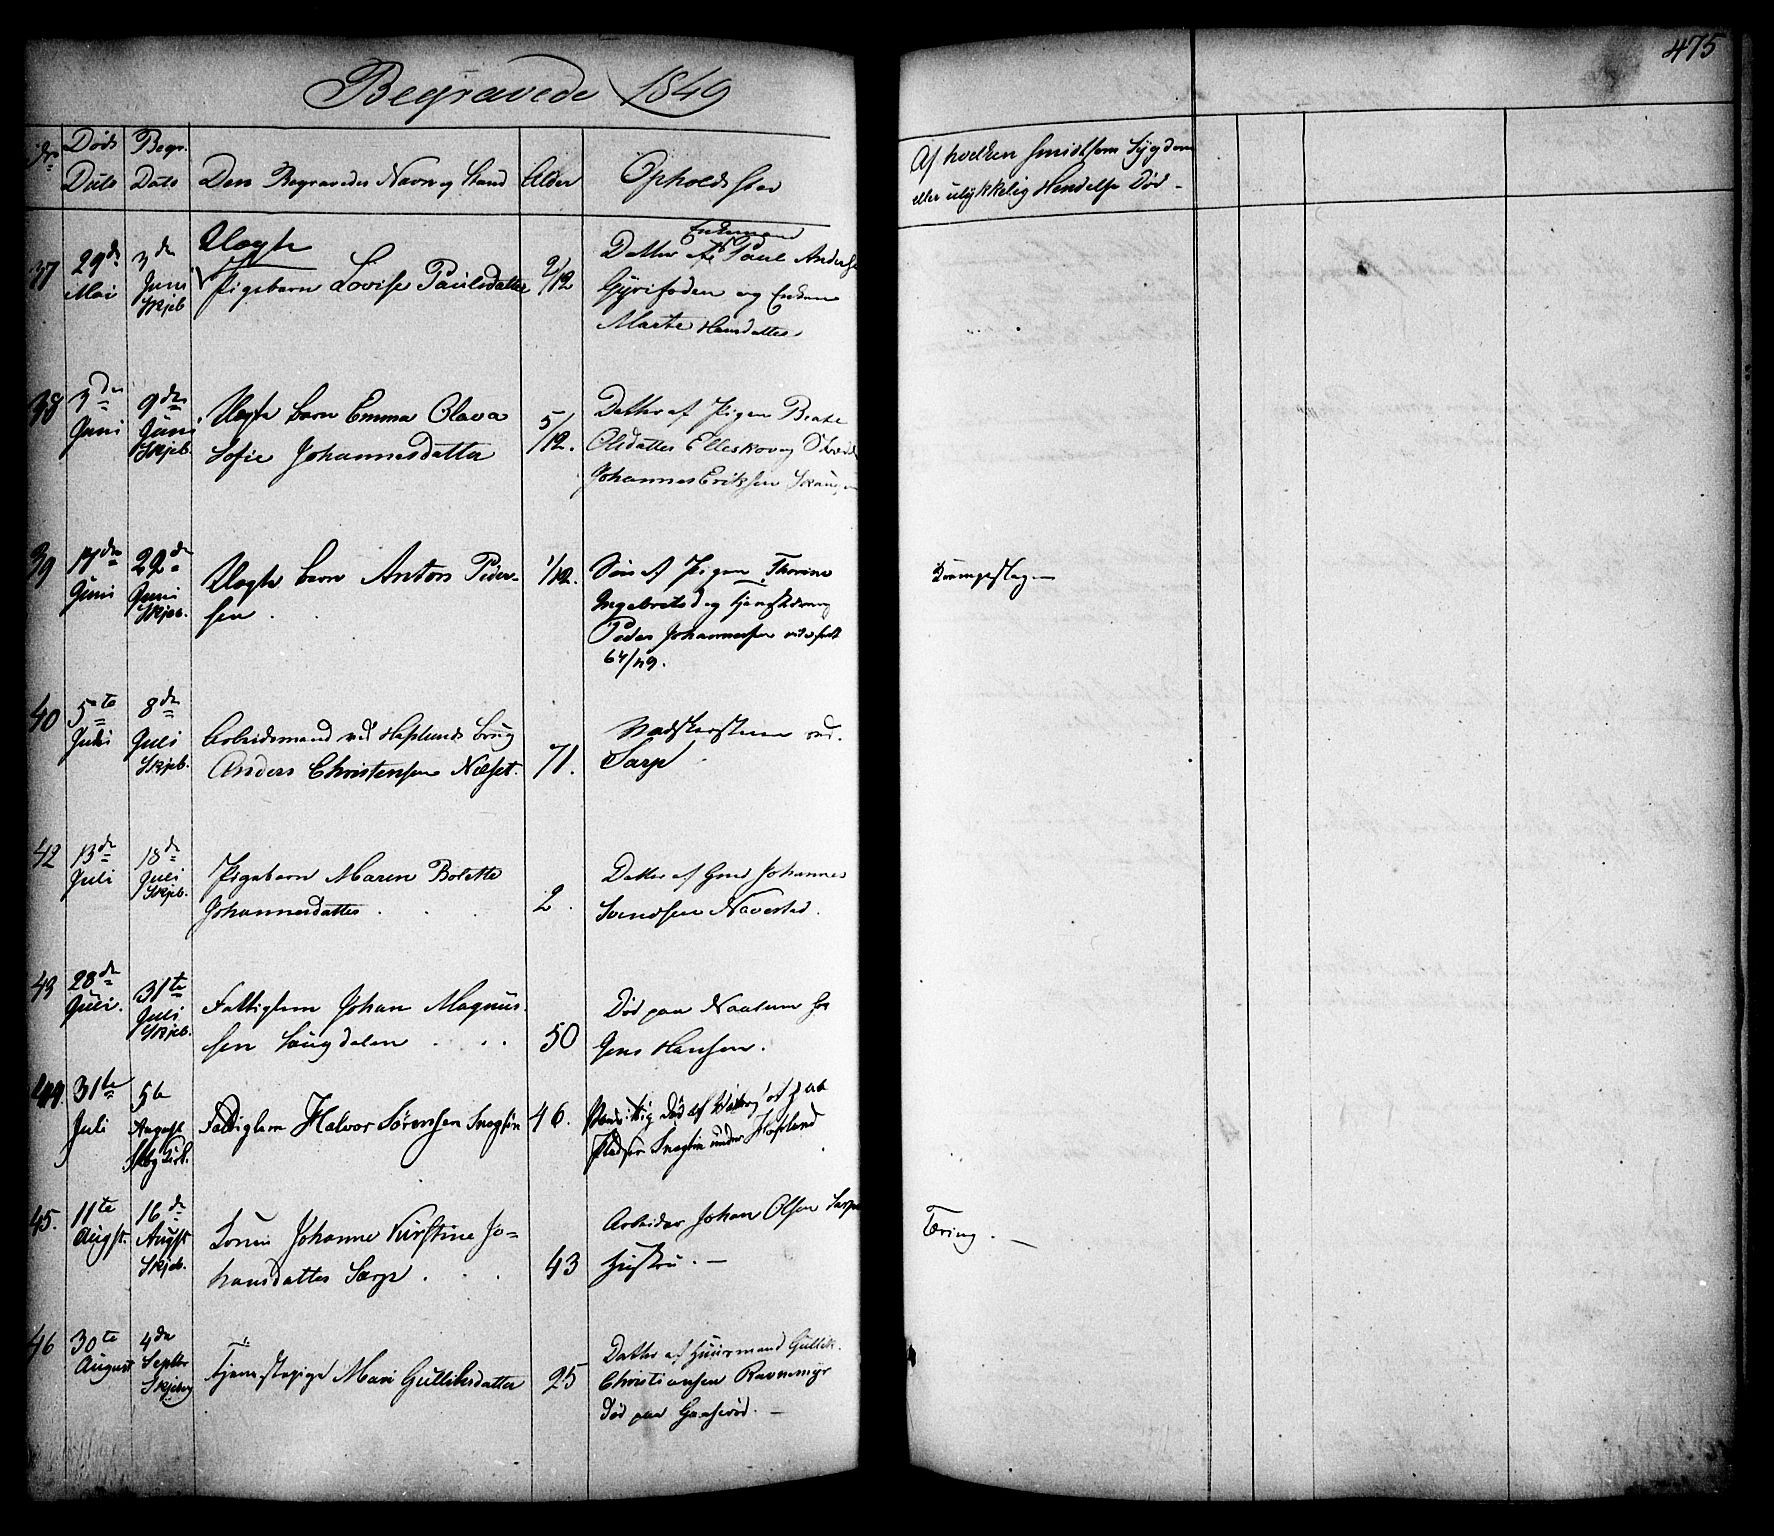 475
Begravede 1849
Nr Døds Dato Begr. Dato Den Begravedes Navn og Stand Alder Opholdssted
Af hvilken smidtsom Sygdom
eller ulykkelig Hendelse Død -
37 29de Mai 3de Juni Skjeb
Uægte
Pigebarn Lovise Paulsdatter
2/12
Enkemand
Datter af Paul Anders
og Enken
Marte Hansdatter
38 3die Juni 9de Juni Skjeb.
Uægte barn Emma Olava
Sofie Johannesdatter
5/12.
Datter af Pigen Beate
Olsdatter Elleskov og
Johannes Eriksen
39 17de Juni 22de Juni Skjeb.
Uægte barn Anton Peder=
sen .
1/12.
Søn af Pigen Thorine
Ingebretsd og
Peder Johannessen
64/49.
Krampeslag
40 5te Juli 8de Juli Skjeb.
Arbeidsmand ved Haflunds Brug
Anders Christensen Næset.
71.
Sarp .
42 13de Juli 18de Juli Skjeb.
Pigebarn Maren Bolette
Johannesdatter . . .
2 .
Datter af Gmd Johannes
Svendsen Navestad .
43 28de Juli. 31te Juli Skjeb.
Fattiglem Johan Magnus=
sen Laugdalen . . .
50
Død paa Naalum hos
Jens Hansen .
44 31te Juli 5te August
Fattiglem Halvor Sørensen
46.
Pladsen under Hafslund
45. 11te August. 16de August Skjeb.
Konen Johanne Kirstine Jo=
hansdatter Sarp . . .
43
Arbeider Johan Olsen Sarps
Hustru . —
Tæring . —
46 30te August 4de Septbr Skjeberg
Tjenestepige Mari Gulliksdatter
25
Datter af Huusmand Gullik
Christiansen Ravnemyr
Død paa Gaaserød. —